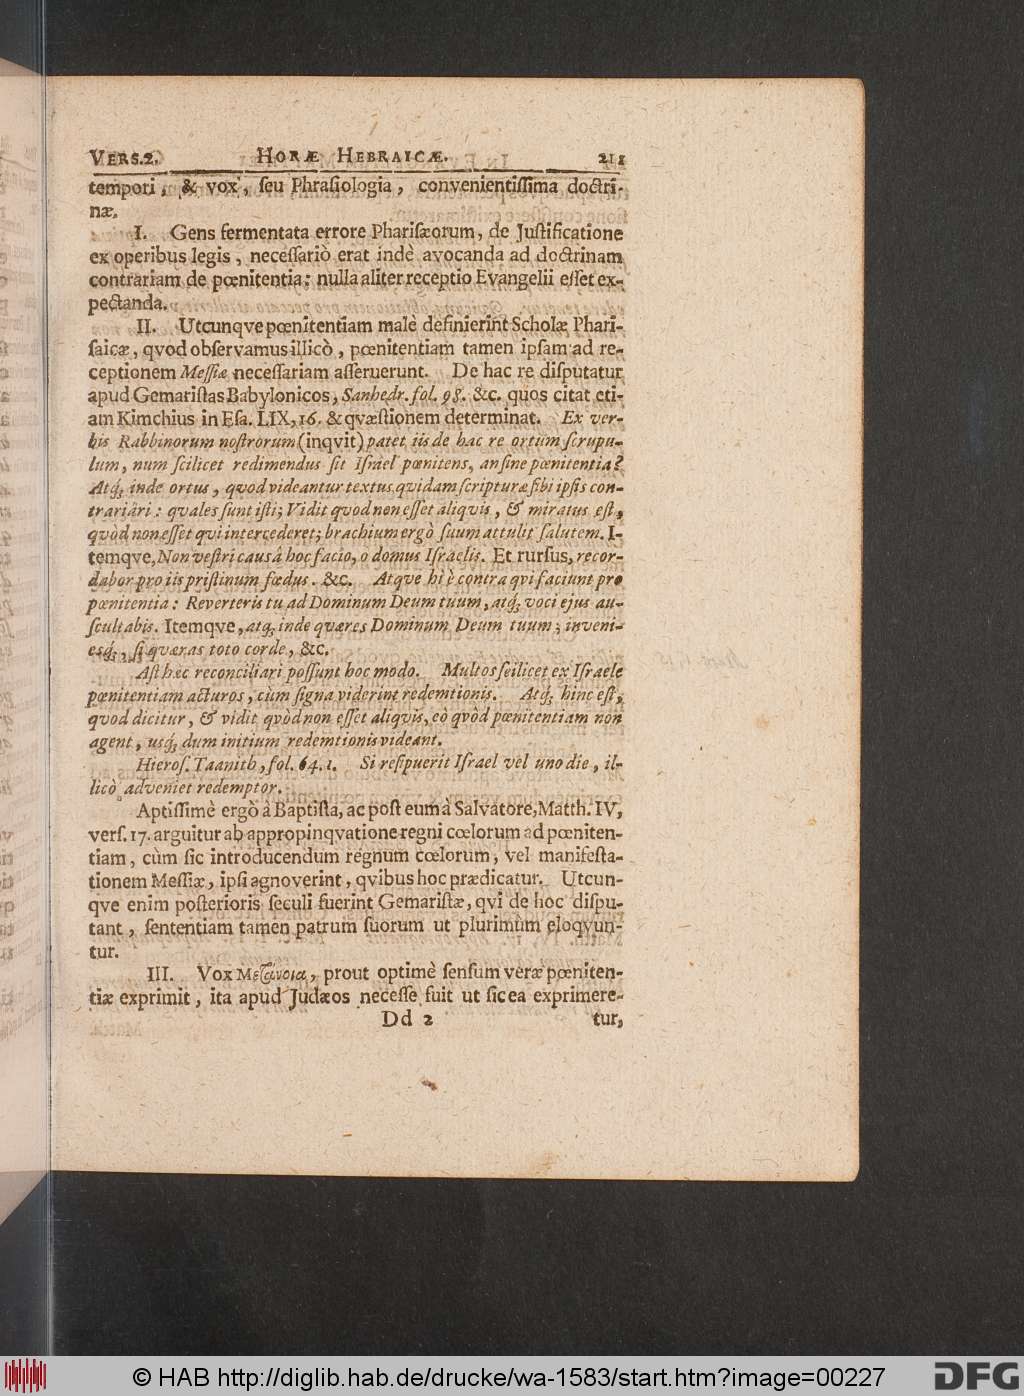 VERS.2. HORÆ HEBRAICÆ. 211
tempori, & vox, ſeu Phraſiologia, convenientiſſima doctri-
næ.
I. Gens fermentata errore Phariſæorum, de Juſtificatione
ex operibus legis, neceſſariò erat indè avocanda ad doctrinam
contrariam de pœnitentia; nulla aliter receptio Evangelii eſſet ex-
pectanda.
II. Utcunqve pœnitentiam malè definierint Scholæ Phari-
ſaicæ, qvod obſervamus illicò, pœnitentiam tamen ipſam ad re-
ceptionem Meſſiæ neceſſariam aſſeruerunt. De hac re diſputatur
apud Gemariſtas Babylonicos, Sanhedr. fol. 98. &c. quos citat eti-
am Kimchius in Eſa. LIX, 16. & qvæſtionem determinat. Ex ver-
bis Rabbinorum noſtrorum (inqvit) patet iis de hac re ortum ſcrupu-
lum, num ſcilicet redimendus ſit Iſrael pœnitens, an ſine pœnitentia?
Atq; inde ortus, quod videantur textus quidam ſcripturæ ſibi ipſis con-
trariari: quales ſunt iſti; Vidit quod non eſſet aliqvis, & miratus eſt,
quòd non eſſet qui intercederet; brachium ergò ſuum attulit ſalutem. I-
temqve, Non veſtri causâ hoc facio, o domus Iſraelis. Et rurſus, recor-
dabor pro iis priſtinum fœdus. &c. Atqve hi è contra qvi faciunt pro
pœnitentia: Reverteris tu ad Dominum Deum tuum, atq; voci ejus au-
ſcultabis. Itemqve, atq; inde quæres Dominum Deum tuum; inveni-
esq;, ſi quæras toto corde, &c.
Aſt hæc reconciliari poſſunt hoc modo. Multos ſcilicet ex Iſraele
pœnitentiam acturos, cùm ſigna viderint redemtionis. Atq; hinc eſt,
quod dicitur, & vidit qvòd non eſſet aliqvis, eò qvòd pœnitentiam non
agent, usq; dum initium redemtionis videant.
Hieroſ. Taanith, fol. 64. 1. Si reſipuerit Iſrael vel uno die, il-
licò adveniet redemptor.
Aptiſſimè ergò à Baptiſta, ac poſt eum à Salvatore, Matth. IV,
verſ. 17. arguitur ab appropinqvatione regni cœlorum ad pœniten-
tiam, cùm ſic introducendum regnum cœlorum, vel manifeſta-
tionem Meſſiæ, ipſi agnoverint, qvibus hoc prædicatur. Utcun-
qve enim poſterioris ſeculi fuerint Gemariſtæ, qvi de hoc diſpu-
tant, ſententiam tamen patrum ſuorum ut plurimùm eloqvun-
tur.
III. Vox Μετάνοια, prout optimè ſenſum veræ pœniten-
tiæ exprimit, ita apud Judæos neceſſe fuit ut ſic ea exprimere-
Dd 2 tur,
© HAB http://diglib.hab.de/drucke/wa-1583/start.htm?image=00227
DFG